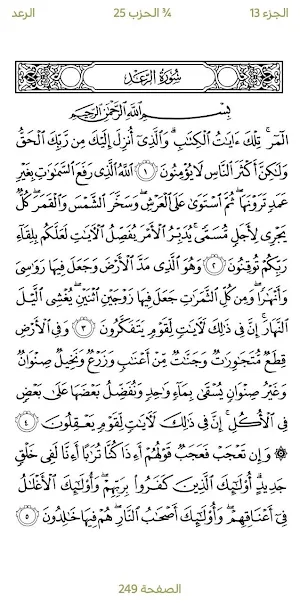 الجزء 13 ¾ الحزب 25 الرعد
سُورَةُ الرَّعْدِ
بِسْمِ اللَّهِ الرَّحْمَٰنِ الرَّحِيمِ
الٓمٓرۚ تِلْكَ ءَايَٰتُ ٱلْكِتَٰبِۗ وَٱلَّذِىٓ أُنزِلَ إِلَيْكَ مِن رَّبِّكَ ٱلْحَقُّ
وَلَٰكِنَّ أَكْثَرَ ٱلنَّاسِ لَا يُؤْمِنُونَ ١ ٱللَّهُ ٱلَّذِى رَفَعَ ٱلسَّمَٰوَٰتِ بِغَيْرِ
عَمَدٍ تَرَوْنَهَاۖ ثُمَّ ٱسْتَوَىٰ عَلَى ٱلْعَرْشِۖ وَسَخَّرَ ٱلشَّمْسَ وَٱلْقَمَرَۖ كُلٌّ
يَجْرِى لِأَجَلٍ مُّسَمًّىۚ يُدَبِّرُ ٱلْأَمْرَ يُفَصِّلُ ٱلْءَايَٰتِ لَعَلَّكُم بِلِقَآءِ
رَبِّكُمْ تُوقِنُونَ ٢ وَهُوَ ٱلَّذِى مَدَّ ٱلْأَرْضَ وَجَعَلَ فِيهَا رَوَٰسِىَ
وَأَنْهَٰرًاۖ وَمِن كُلِّ ٱلثَّمَرَٰتِ جَعَلَ فِيهَا زَوْجَيْنِ ٱثْنَيْنِۖ يُغْشِى ٱلَّيْلَ
ٱلنَّهَارَۚ إِنَّ فِى ذَٰلِكَ لَءَايَٰتٍ لِّقَوْمٍ يَتَفَكَّرُونَ ٣ وَفِى ٱلْأَرْضِ
قِطَعٌ مُّتَجَٰوِرَٰتٌ وَجَنَّٰتٌ مِّنْ أَعْنَٰبٍ وَزَرْعٌ وَنَخِيلٌ صِنْوَانٌ
وَغَيْرُ صِنْوَانٍ يُسْقَىٰ بِمَآءٍ وَٰحِدٍ وَنُفَضِّلُ بَعْضَهَا عَلَىٰ بَعْضٍ
فِى ٱلْأُكُلِۚ إِنَّ فِى ذَٰلِكَ لَءَايَٰتٍ لِّقَوْمٍ يَعْقِلُونَ ٤
۞ وَإِن تَعْجَبْ فَعَجَبٌ قَوْلُهُمْ أَءِذَا كُنَّا تُرَٰبًا أَءِنَّا لَفِى خَلْقٍ
جَدِيدٍۗ أُو۟لَٰٓئِكَ ٱلَّذِينَ كَفَرُوا۟ بِرَبِّهِمْۖ وَأُو۟لَٰٓئِكَ ٱلْأَغْلَٰلُ
فِىٓ أَعْنَاقِهِمْۖ وَأُو۟لَٰٓئِكَ أَصْحَٰبُ ٱلنَّارِۖ هُمْ فِيهَا خَٰلِدُونَ ٥
الصفحة 249